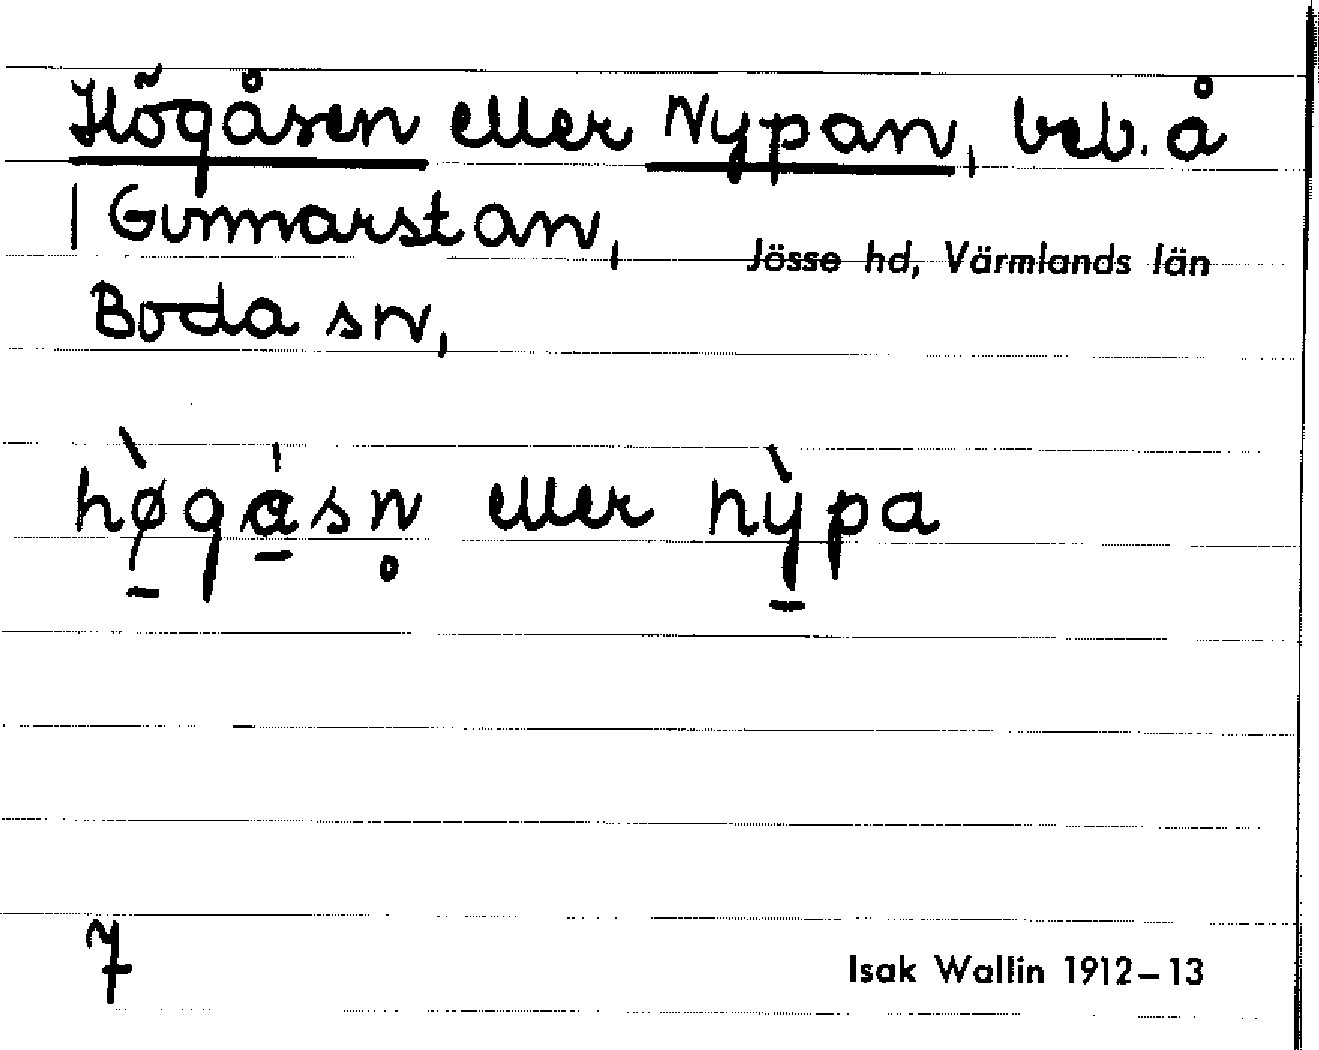 Högåsen eller Nypan, beb. å
| Gunnarstan,
Jösse hd, Värmlands län
Boda sn,
hø̀gåsn̥ eller nỳpa
7
Isak Wallin 1912–13